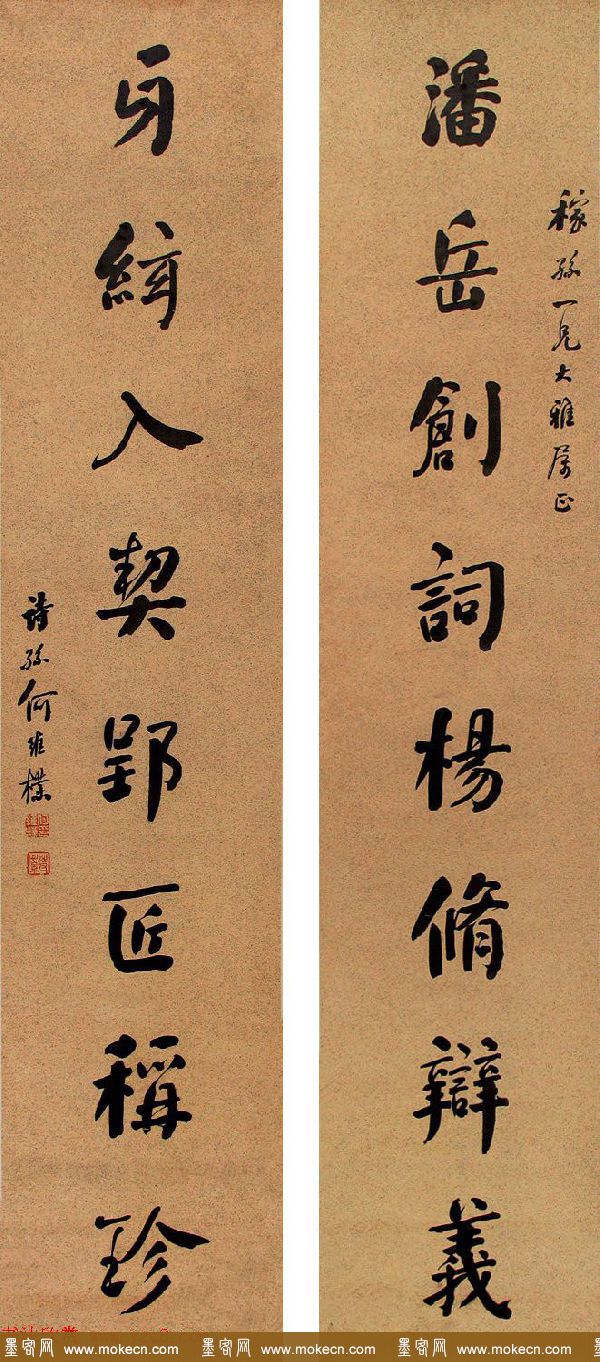 稼孫一兄大雅屬正
潘岳創詞楊脩辯義
牙絃入契郢匠稱珍
詩孫何維樸
墨客网 www.mokecn.com 墨客网 www.mokecn.com 墨客网 www.mokecn.com